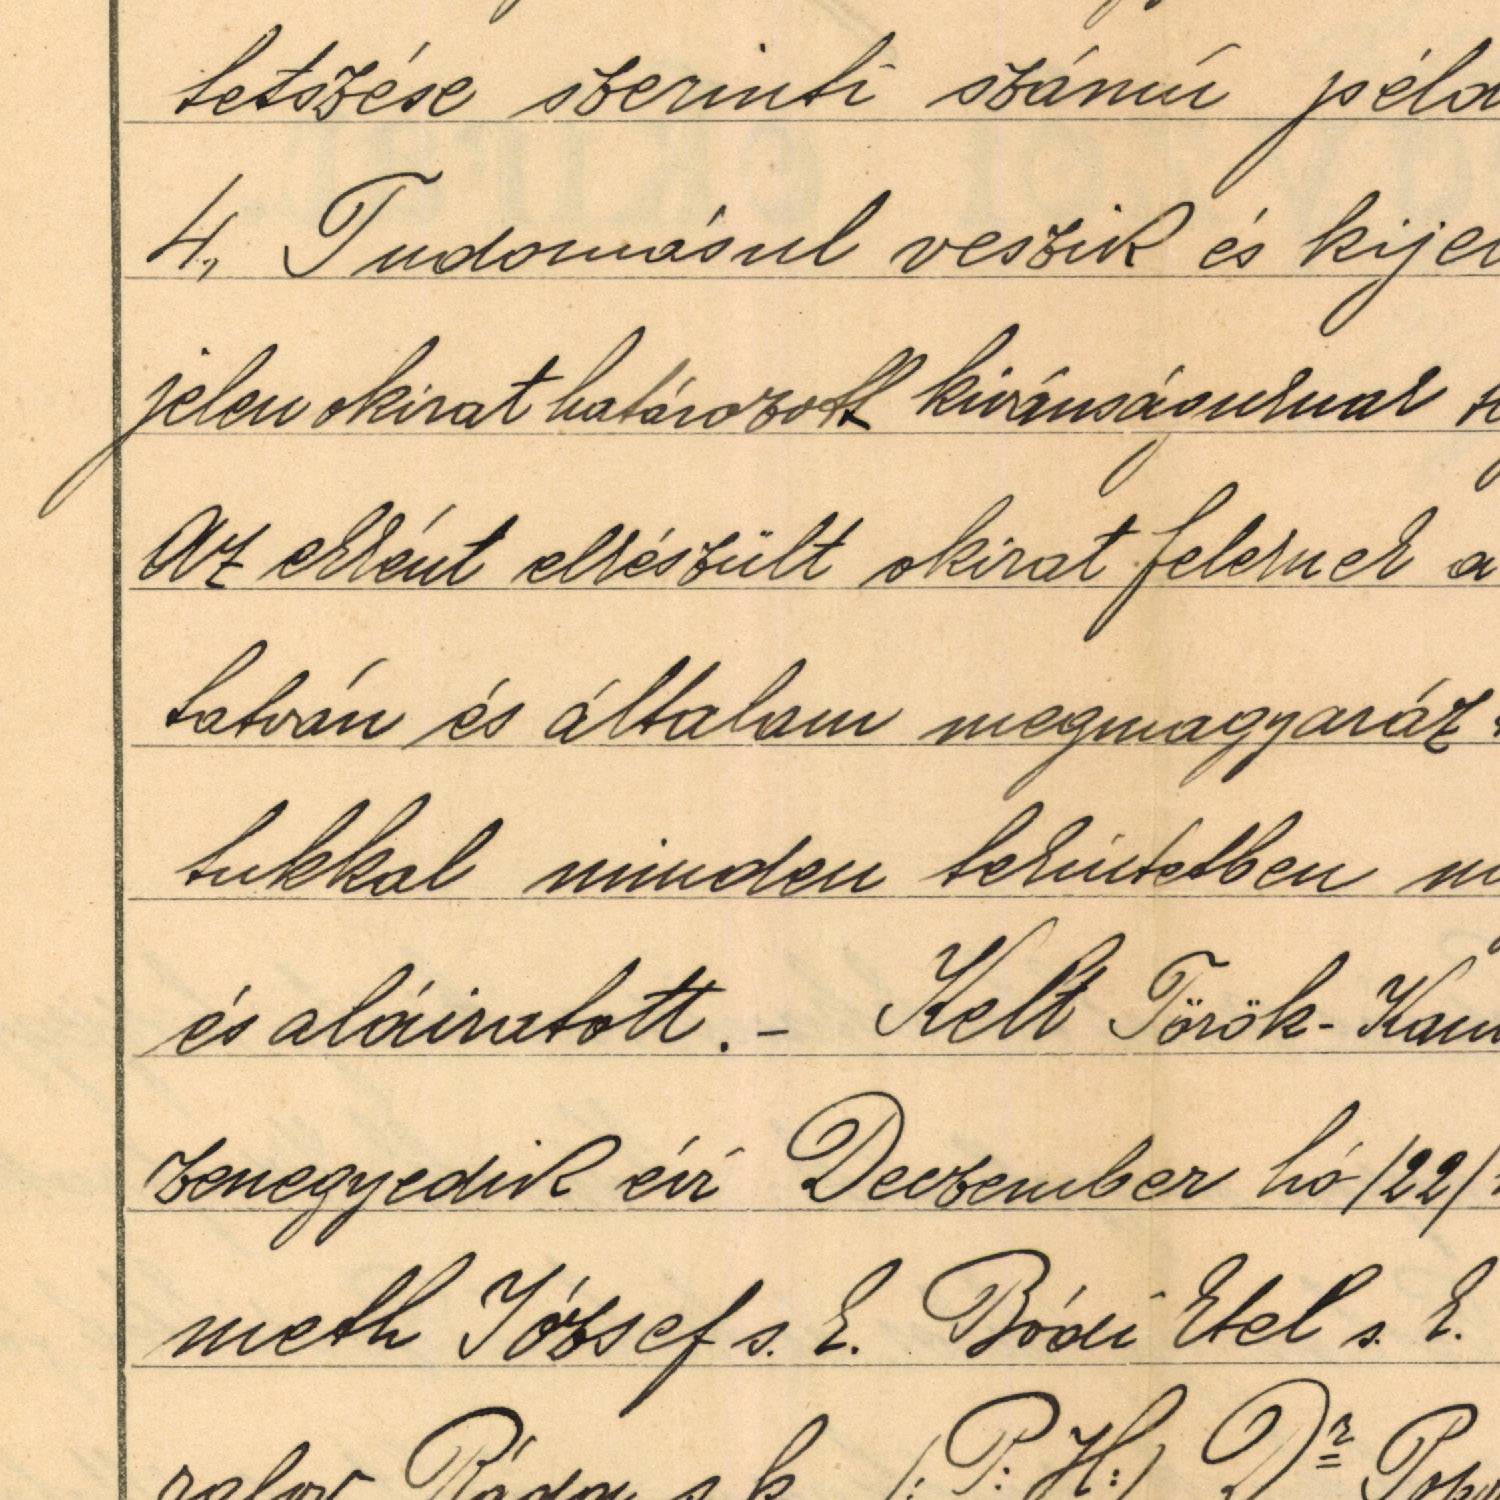 tetszése szerinti számú péld
4., Tudomásul veszik és kijel
jelen okirat határozott kivánságuknak
Az ekként elkészült okirat feleknek a
tatván és általam megmagyaráz
tukkal minden tekintetben m
és aláiratott. – Kelt Török-Kani
zenegyedik évi Deczember hó /22/
meth József s. k. Bódi Etel s. k.
s. k. (: P. H:) Dr